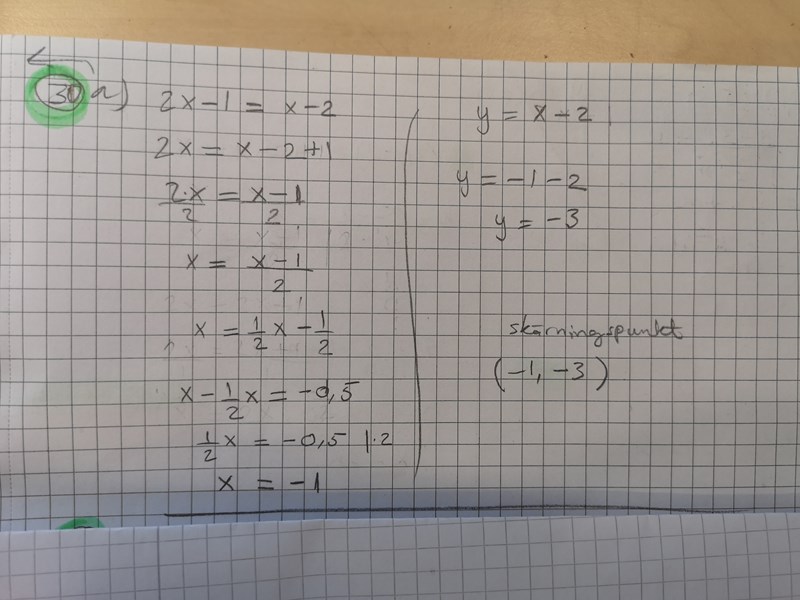 30 a)
2x-1 = x-2
2x = x-2+1
2·x/2 = x-1/2
x = x-1/2
x = 1/2 x - 1/2
x - 1/2 x = -0,5
1/2 x = -0,5 |·2
x = -1
y = x-2
y = -1-2
y = -3
skärningspunkt
(-1, -3)